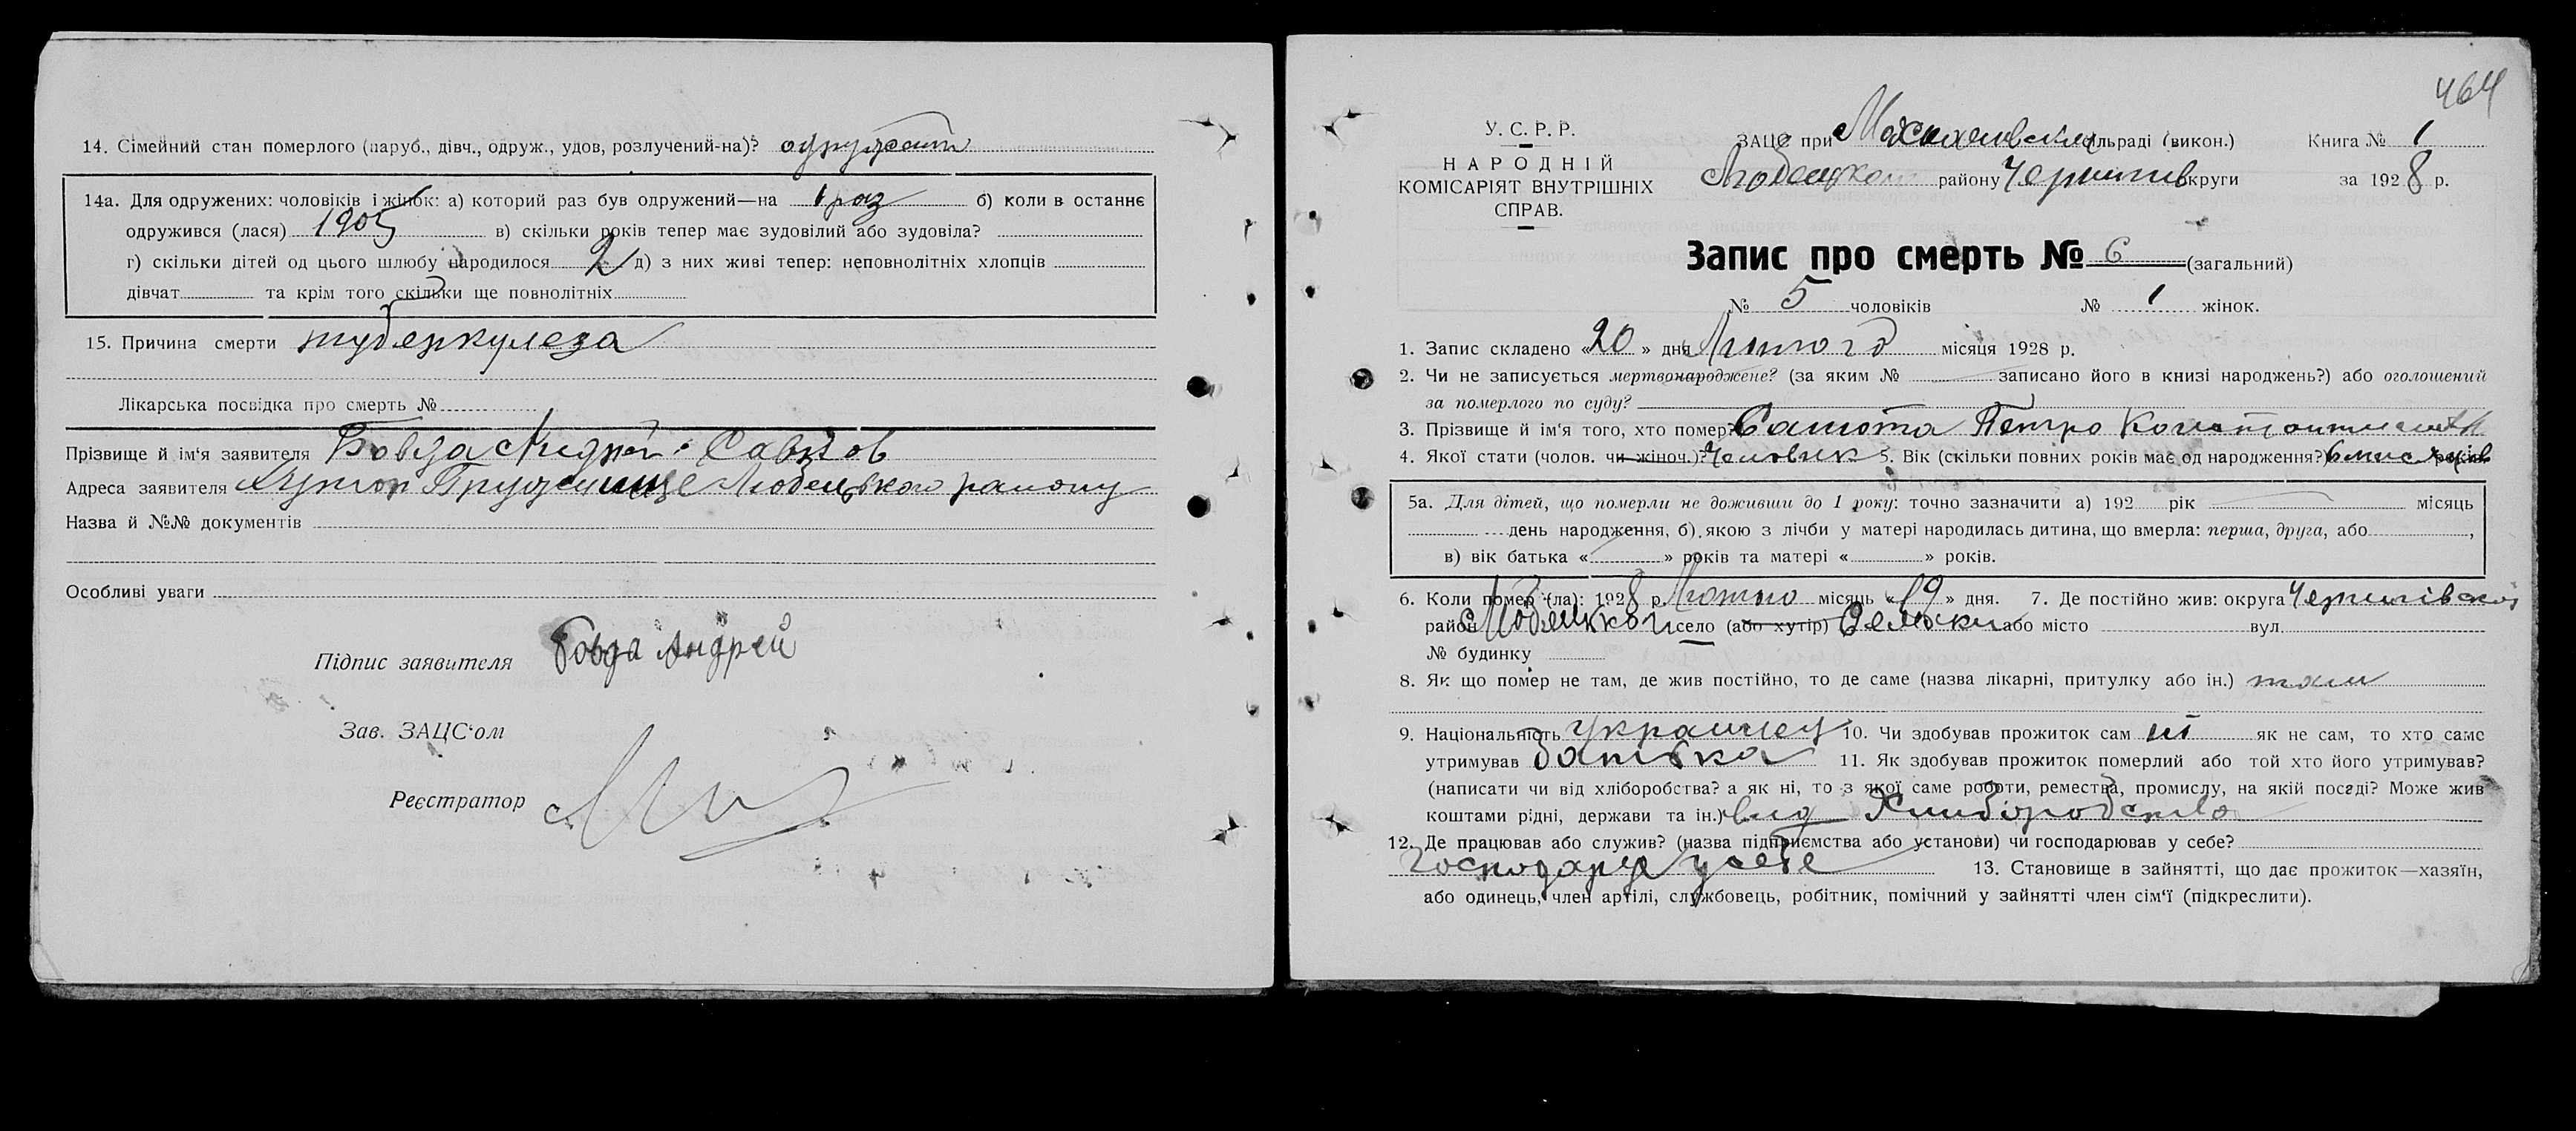 14. Сімейний стан померлого (паруб., дівч., одруж., удов, розлучений-на)? одружат
14а. Для одружених: чоловіків і жінок: а) который раз був одружений—на 1 раз б) коли в останнє
одружився (лася) 1905 в) скільки років тепер має зудовілий або зудовіла?
г) скільки дітей од цього шлюбу народилося 2 д) з них живі тепер: неповнолітніх хлопців
дівчат та крім того скільки ще повнолітніх
15. Причина смерти туберкулеза
Лікарська посвідка про смерть №
Прізвище й ім'я заявителя Бовда Андрей Савков
Адреса заявителя Хутор Любецького району
Назва й №№ документів
Особливі уваги
Підпис заявителя Бовда Андрей
Зав. ЗАЦС'ом
Реєстратор
464
У. С. Р. Р.
НАРОДНІЙ
КОМІСАРІЯТ ВНУТРІШНІХ
СПРАВ.
ЗАЦС при сільраді (викон.) Книга № 1
району Чернигів округи за 1928 р.
Запис про смерть № 6 (загальний)
№ 5 чоловіків № 1 жінок.
1. Запис складено «20» дня Лютого місяця 1928 р.
2. Чи не записується мертвонароджене? (за яким № записано його в книзі народжень?) або оголошений
за померлого по суду?
3. Прізвище й ім'я того, хто помер? Петро
4. Якої стати (чолов. чи жіноч.)? Человик 5. Вік (скільки повних років має од народження?) 6 років
5а. Для дітей, що померли не доживши до 1 року: точно зазначити а) 192 рік місяць
день народження, б) якою з лічби у матері народилась дитина, що вмерла: перша, друга, або ,
в) вік батька « » років та матері « » років.
6. Коли помер (ла): 1928 р. Лютого місяць «19» дня. 7. Де постійно жив: округа Чернигівской
район село (або хутір) або місто вул.
№ будинку
8. Як що помер не там, де жив постійно, то де саме (назва лікарні, притулку або ін.) там
9. Національність Украинец 10. Чи здобував прожиток сам ні як не сам, то хто саме
утримував батька 11. Як здобував прожиток померлий або той хто його утримував?
(написати чи від хліборобства? а як ні, то з якої саме роботи, ремества, промислу, на якій посаді? Може жив
коштами рідні, держави та ін.) вид Хлиборобство
12. Де працював або служив? (назва підприємства або установи) чи господарював у себе?
господарує у себе 13. Становище в зайнятті, що дає прожиток—хазяїн,
або одинець, член артілі, службовець, робітник, помічний у зайнятті член сім'ї (підкреслити).